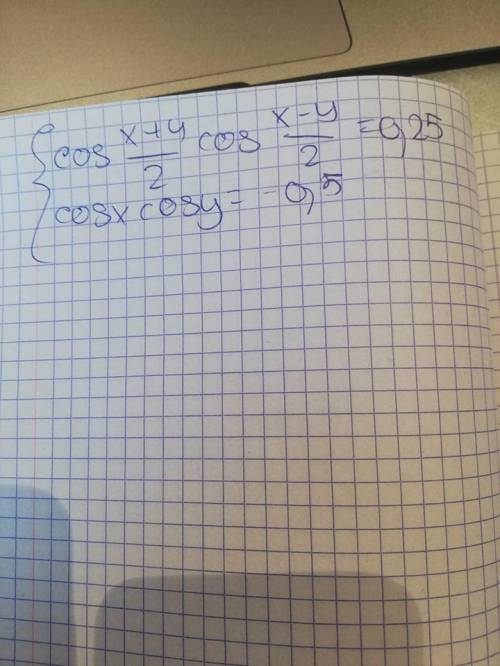 { cos (x+y)/2 cos (x-y)/2 = 0,25
cosx cosy = -0,5